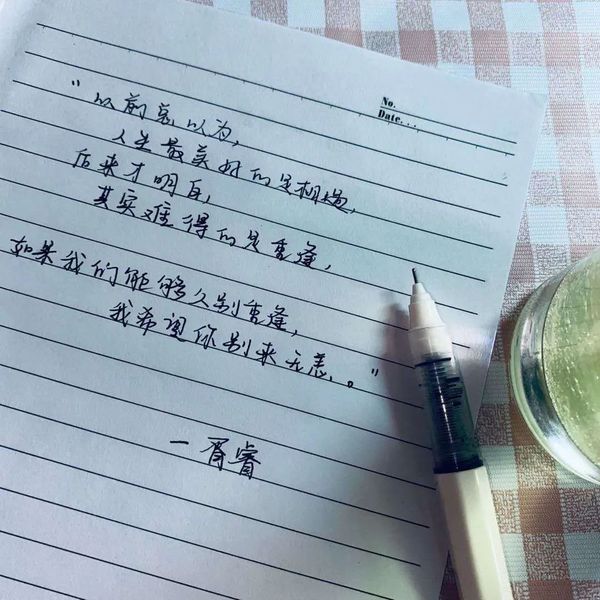 No.
Date. . .
"以前总以为,
人生最美好的是相遇,
后来才明白,
其实难得的是重逢,
如果我们能够久别重逢,
我希望你别来无恙。"
—胥睿